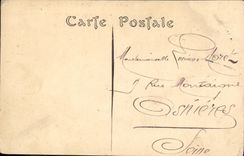 Carte Postale
Mademoiselle
9 Rue Montaigne
Asnières
Seine